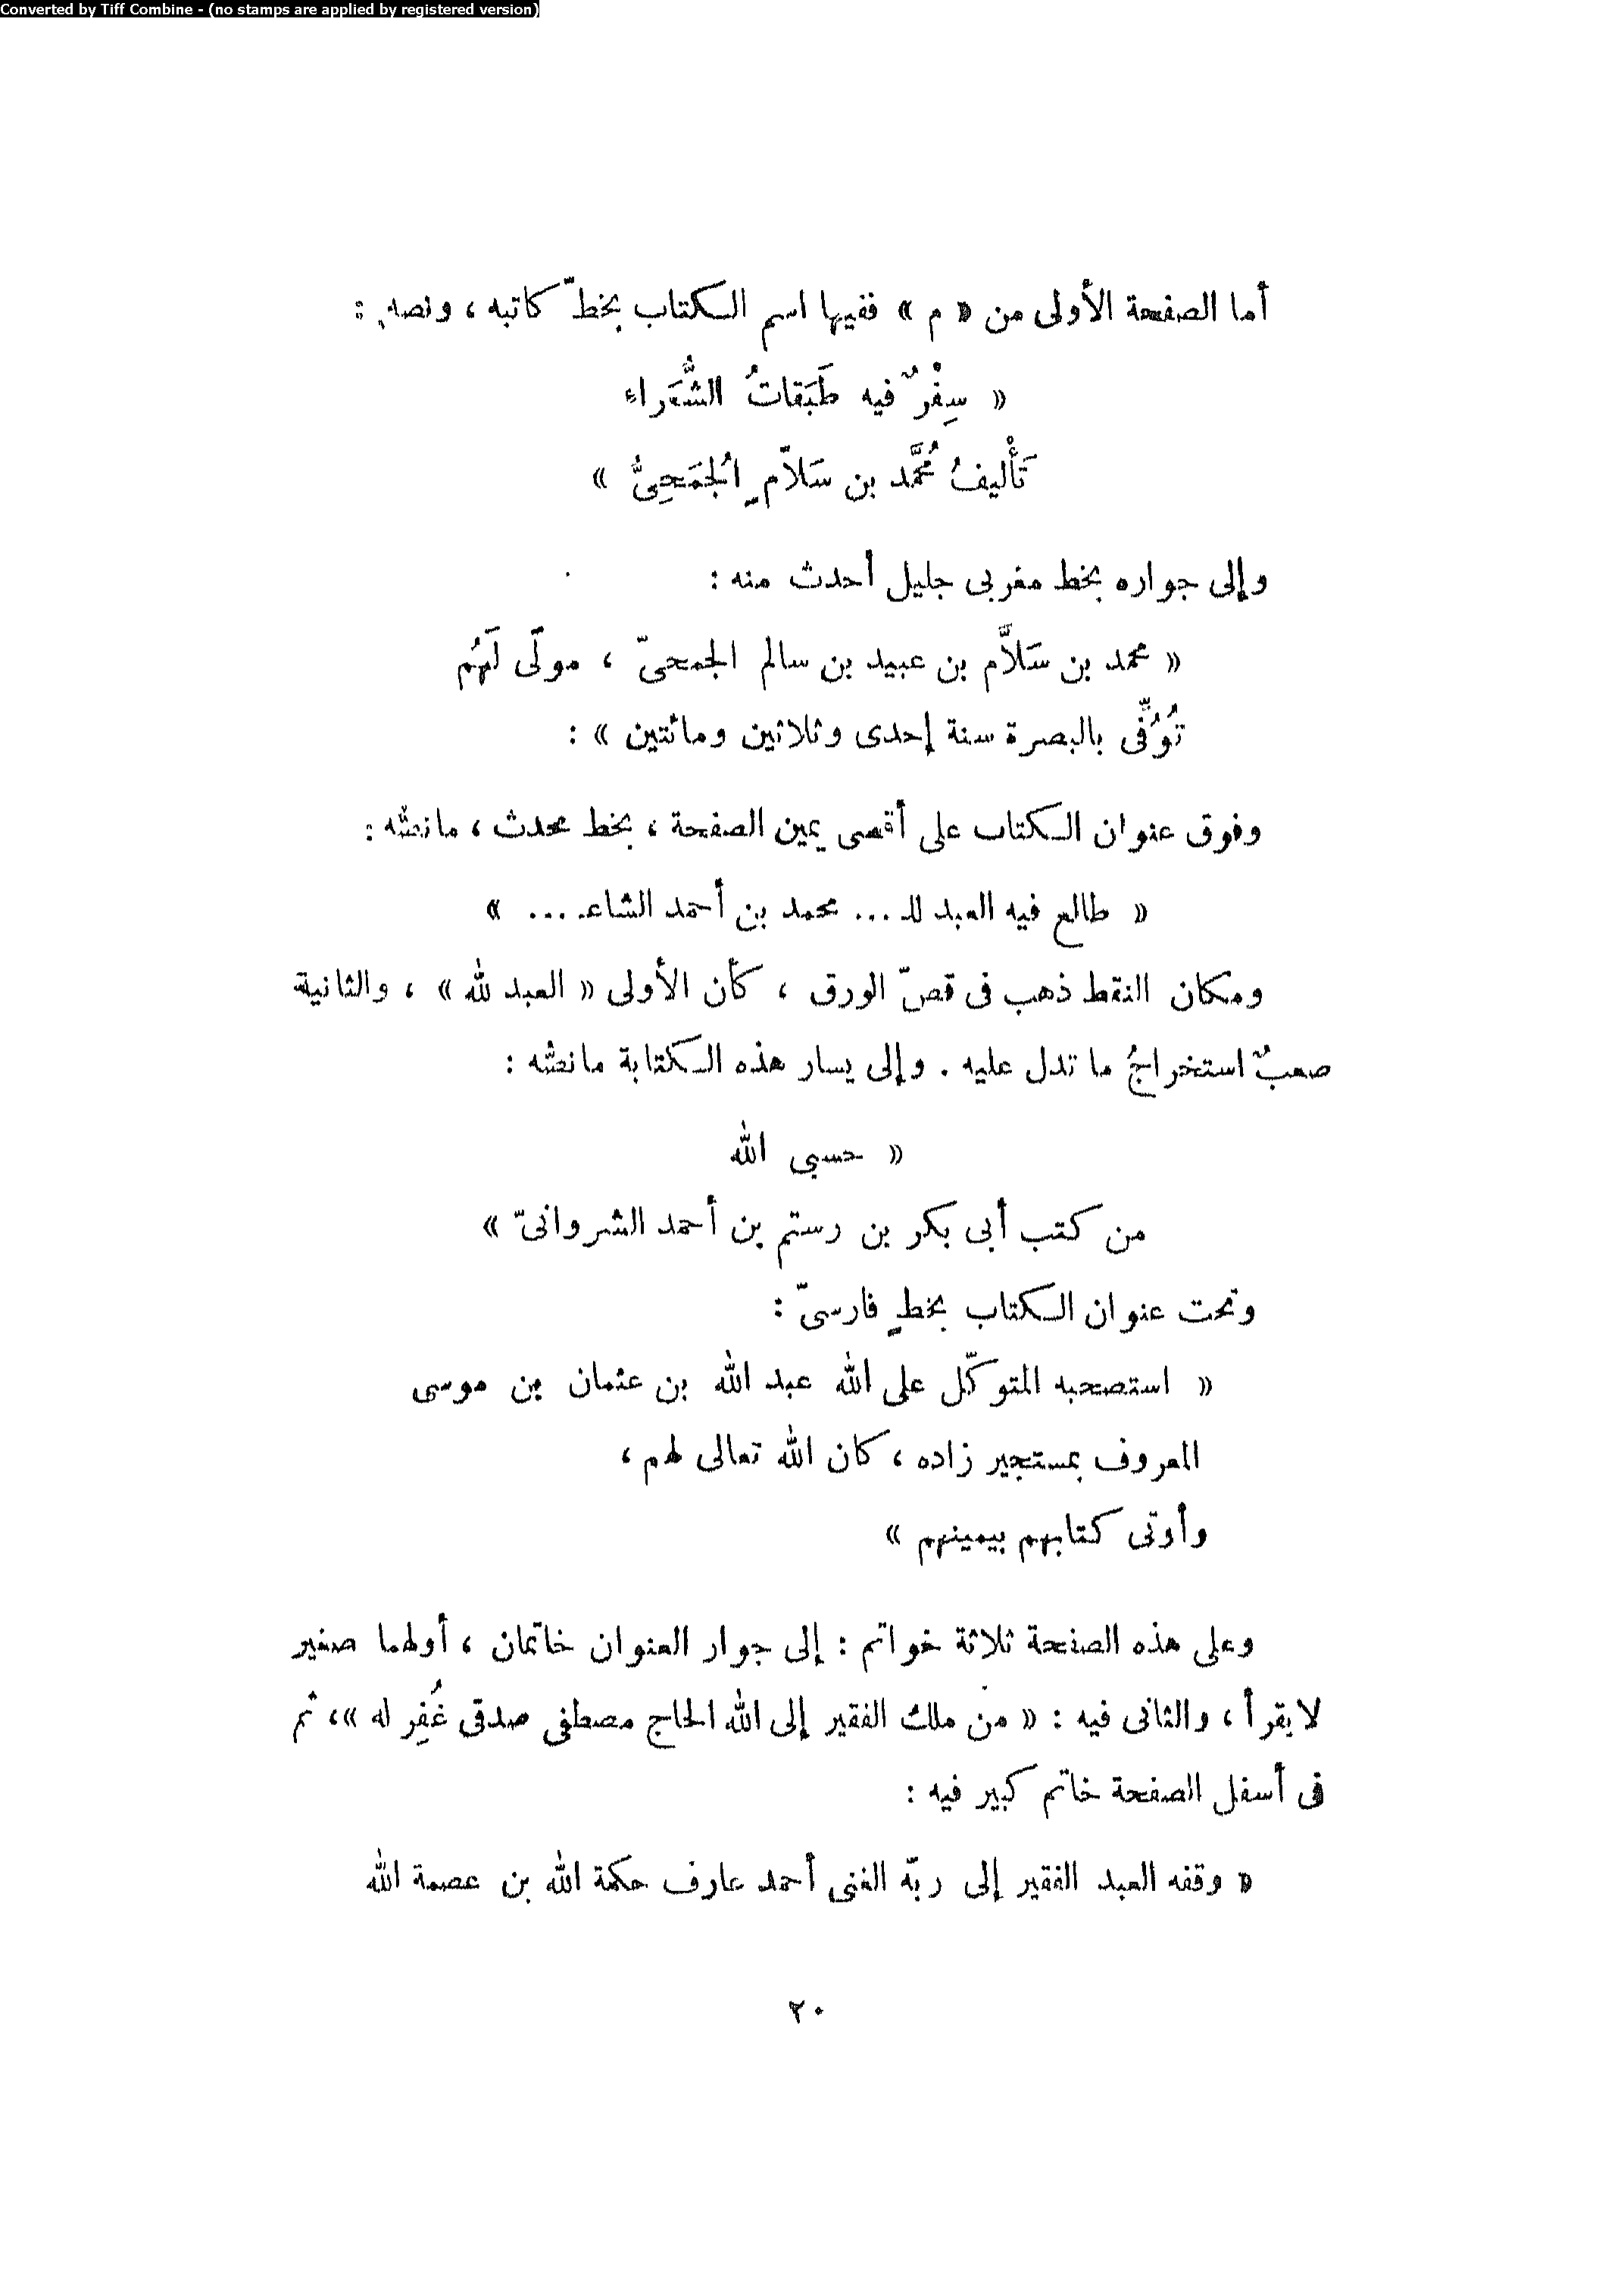 Converted by Tiff Combine - (no stamps are applied by registered version)
أما الصفحة الأولى من « م » ففيها اسم الكتاب بخطّ كاتبه ، ونصه :
« سِفْرٌ فيه طَبَقاتُ الشُّعَراء
تَأْليفُ مُحمَّد بن سَلاّمٍ الُجمَحِىُّ »
وإلى جواره بخط مغربى جليل أحدث منه :
« محمد بن سَلاَّم بن عبيد بن سالم الجمحىّ ، مولًى لَهُم
تُوُفِّى بالبصرة سنة إحدى وثلاثين ومائتين » :
وفوق عنوان الكتاب على أقصى يمين الصفحة ، بخط محدث ، مانصُّه :
« طالع فيه العبد للـ ... محمد بن أحمد الشاعـ .... »
ومكان النقط ذهب فى قصّ الورق ، كأن الأولى « العبد لله » ، والثانية
صعبٌ استخراجُ ما تدل عليه . وإلى يسار هذه الكتابة مانصُّه :
« حسبى الله
من كتب أبى بكر بن رستم بن أحمد الشروانىّ »
وتحت عنوان الكتاب بخطٍ فارسىّ :
« استصحبه المتوكّل على الله عبد الله بن عثمان بن موسى
المعروف بمستجير زاده ، كان الله تعالى لهم ،
وأوتى كتابهم بيمينهم »
وعلى هذه الصفحة ثلاثة خواتم : إلى جوار العنوان خاتمان ، أولهما صغير
لايقرأ ، والثانى فيه : « من ملك الفقير إلى الله الحاج مصطفى صدقى غُفِر له »، ثم
فى أسفل الصفحة خاتم كبير فيه :
« وقفه العبد الفقير إلى ربّه الغنى أحمد عارف حكمة الله بن عصمة الله
٢٠